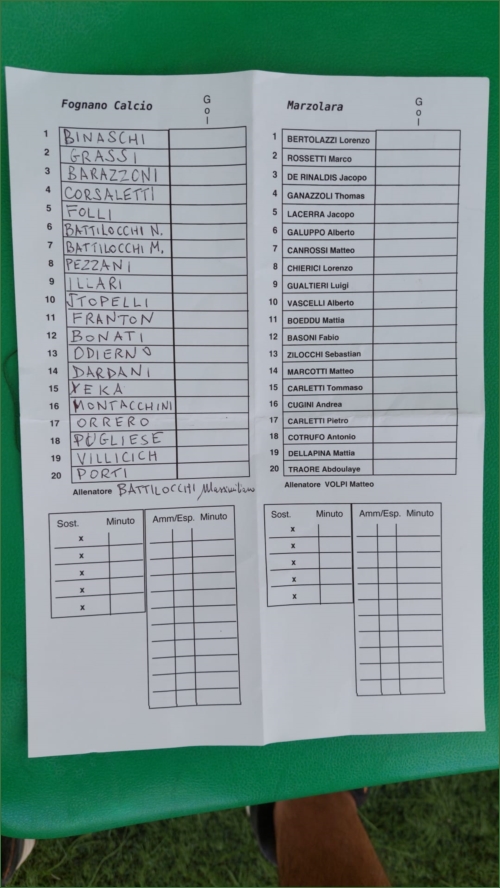 Fognano Calcio
Gol
1 BINASCHI
2 GRASSI
3 BARAZZONI
4 CORSALETTI
5 FOLLI
6 BATTILOCCHI N.
7 BATTILOCCHI M.
8 PEZZANI
9 ILLARI
10 STOPELLI
11 FRANTON
12 BONATI
13 ODIERNO
14 DARDANI
15 XEKA
16 MONTACCHINI
17 ORRERO
18 PUGLIESE
19 VILLICICH
20 PORTI
Allenatore BATTILOCCHI Massimiliano
Sost. Minuto
x
x
x
x
x
Amm/Esp. Minuto
Marzolara
Gol
1 BERTOLAZZI Lorenzo
2 ROSSETTI Marco
3 DE RINALDIS Jacopo
4 GANAZZOLI Thomas
5 LACERRA Jacopo
6 GALUPPO Alberto
7 CANROSSI Matteo
8 CHIERICI Lorenzo
9 GUALTIERI Luigi
10 VASCELLI Alberto
11 BOEDDU Mattia
12 BASONI Fabio
13 ZILOCCHI Sebastian
14 MARCOTTI Matteo
15 CARLETTI Tommaso
16 CUGINI Andrea
17 CARLETTI Pietro
18 COTRUFO Antonio
19 DELLAPINA Mattia
20 TRAORE Abdoulaye
Allenatore VOLPI Matteo
Sost. Minuto
x
x
x
x
x
Amm/Esp. Minuto